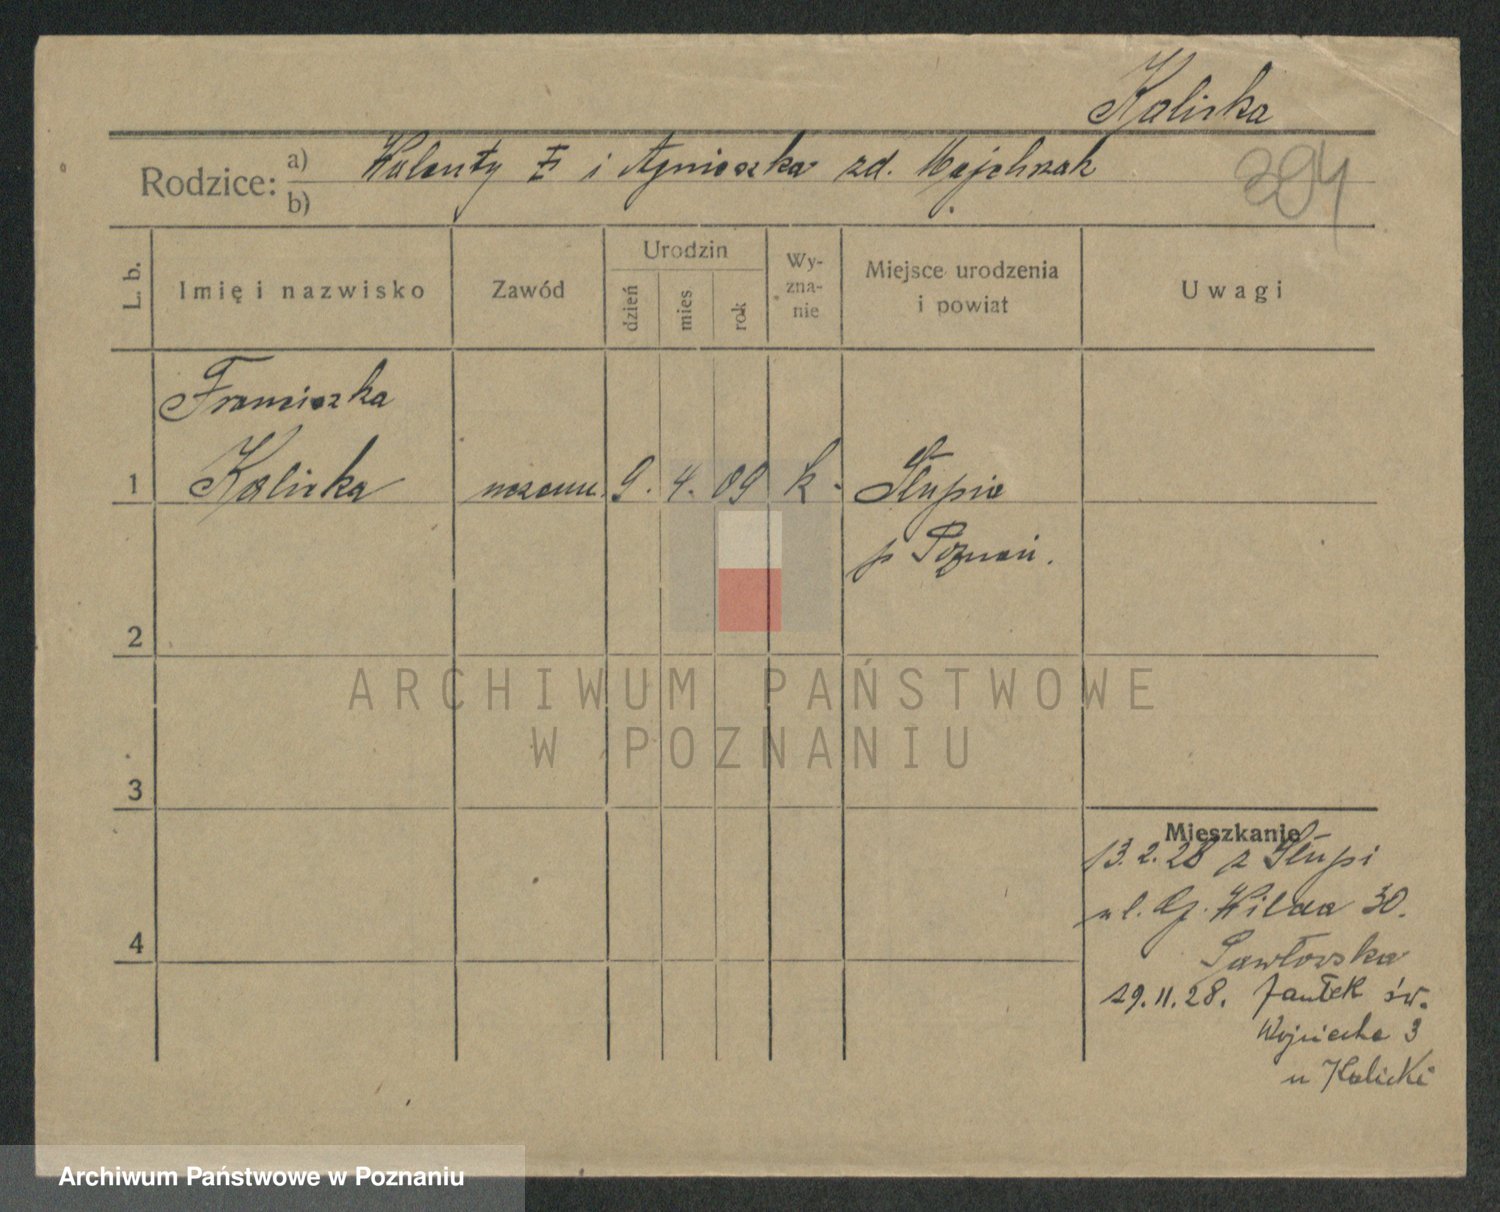 Kaliska
Rodzice: a) Walenty i Agnieszka zd. Majchrzak
b)
294
L. b.
Imię i nazwisko
Zawód
Urodzin
dzień
mies
rok
Wy-
zna-
nie
Miejsce urodzenia
i powiat
Uwagi
Franciszka
1 Kaliska 9. 4. 09 k. Słupia
p Poznań.
2
3
4
Mieszkanie
13. 2. 28 z Słupi
ul. G. Wilda 30.
Pawłowska
29. 11. 28. św.
Wojciecha 3
u Kalicki
ARCHIWUM PAŃSTWOWE
W POZNANIU
Archiwum Państwowe w Poznaniu